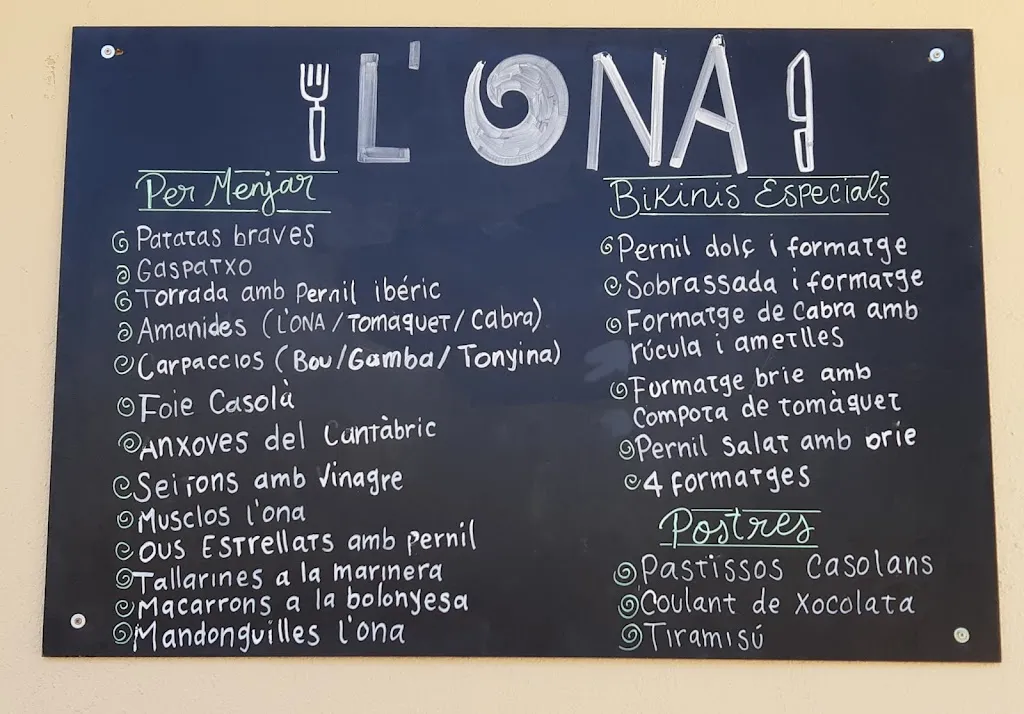 L'ONA
Per Menjar
Patatas braves
Gaspatxo
Torrada amb Pernil ibéric
Amanides (L'ONA/Tomaquet/Cabra)
Carpaccios (Bou/Gamba/Tonyina)
Foie Casolà
Anxoves del Cantàbric
Seitons amb Vinagre
Musclos l'ona
OUS ESTRELLATS amb pernil
Tallarines a la marinera
Macarrons a la bolonyesa
Mandonguilles l'ona
Bikinis Especials
Pernil dolç i formatge
Sobrassada i formatge
Formatge de Cabra amb
rúcula i ametlles
Formatge brie amb
Compota de tomàquet
Pernil Salat amb brie
4 formatges
Postres
Pastissos Casolans
Coulant de Xocolata
Tiramisú